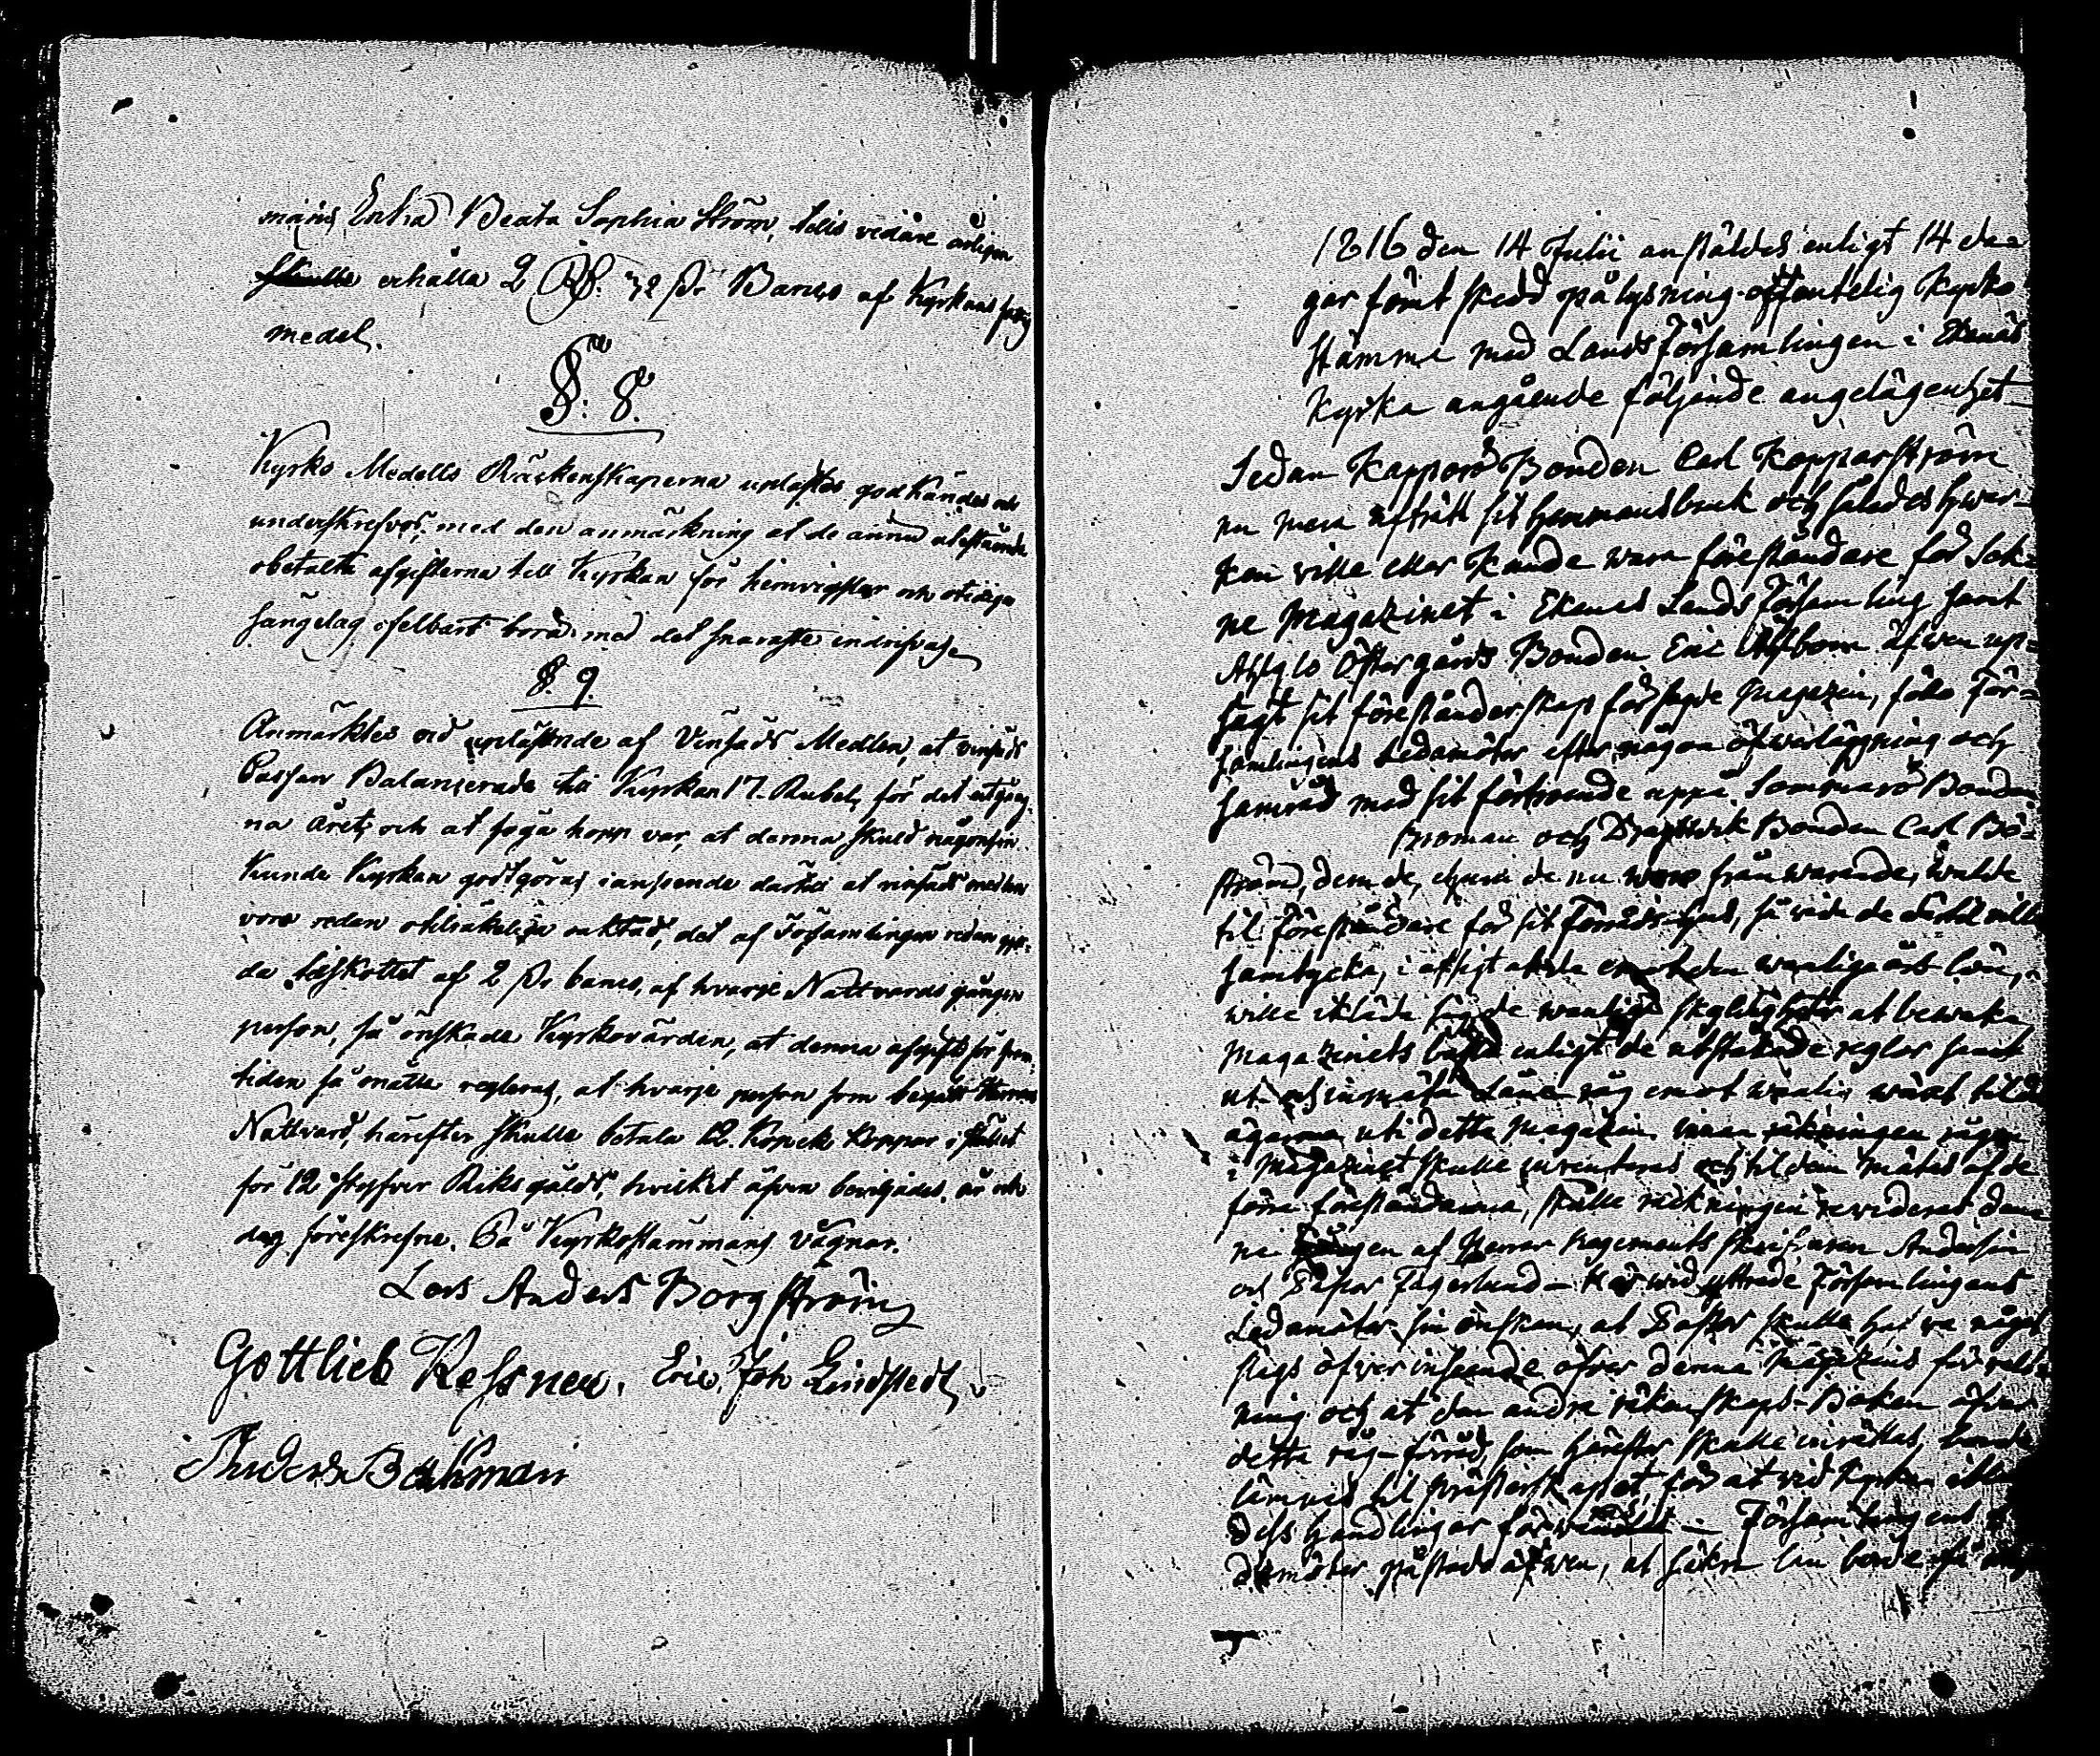 mans Enka Beata Sophia Ström, tills vidare årligen
skulle erhålla 2 Rd. 32 sk. Banco af Kyrkans fattig
medel.
§. 8.
Kyrko Medells Räckenskaperna uplästes godkändes och
underskrefvos, med den anmärkning at de ännu utestående
obetalte afgifterna till Kyrkan för hemvigslar och otidiga
sängelag ofelbart borde med det snaraste indrifvas.
§. 9.
Anmärktes vid upläsande af Vinsäds Medlen, at vinsäds
Cassan Balancerade till Kyrkan 17. Rubel, för det utgång-
na året, och at föga hopp var, at denna skuld någonsin
kunde Kyrkan godtgöras i anseende dertill at vinsäds medlen
voro redan otilräkelige ansedde, det af Församlingen redan
da tilskottet af 2 sk. banco, af hvarje Nattvards gången
person, så önskade Kyrkovärden, at denna afgift för fram-
tiden så måtte regleras, at hvarje person som begått Herrans
Nattvard, härefter skulle betala 12. Kopek Koppar i stället
för 12 styfver Riksgälds, hvilket äfven beviljades. år och
dag föreskrefne. På Kyrkostämmans vägnar.
Lars Anders Borgström
Gottlieb Kessner. Eric Joh Lindstedt
Anders Backman
1816 den 14 Julii anstäldes enligt 14 da-
gar förut skedd pålysning offentelig Kyrko
stämma med Landsförsamlingen i Ekenäs
Kyrka angående följande angelägenhet
Sedan Kappord Bonden Carl Kopparström
nu mera afträdt sit hemmansbruk och således hwar-
ken ville eller kunde wara föreståndare för Sock-
ne Magazinet i Ekenäs Lands Församling samt
Östergårds Bonden Eric Ahlbom äfwen up-
sagt sit föreståndarskap för sagde Magazin, föllo För-
samlingens Ledamöter efter någon öfwerläggning och
samråd med sit förtroende uppå Sommarö Bonden
Broman och Bonden Carl Bö-
ström, dem de, ehuru de nu woro frånwarande, walde
til föreståndare för sit Förråds-hus, så wida de dertil wille
samtycka, i afsigt at de emot den wanliga års lön,
wille ikläda sig de wanliga skyldigheter at bewaka
Magazinets bästa enligt de utstakade reglor samt
ut och inmäta Låne råg emot wanlig wård til
ägarena uti detta Magazin innan räkningen
i Magazinet skulle inventeras och til dem mätas af de
förra föreståndarena, skulle räkningen revideras denna
gången af Herrar Regements skrifwaren Andersin
och Pastor Fagerlund – Härwid yttrade Församlingens
Ledamöter sin önskan, at Pastor skulle hafwa något
slags öfwer inseende öfwer denna Magazins förvalt-
ning och at den andra räkenskaps-Boken öfwer
detta råg-förråd, som härefter skulle inrättas, borde
lämnas til Prästerskapet, för at wid Kyrkan ibland
dess handlingar förwaras – Församlingens
damöter påstodo äfwen, at